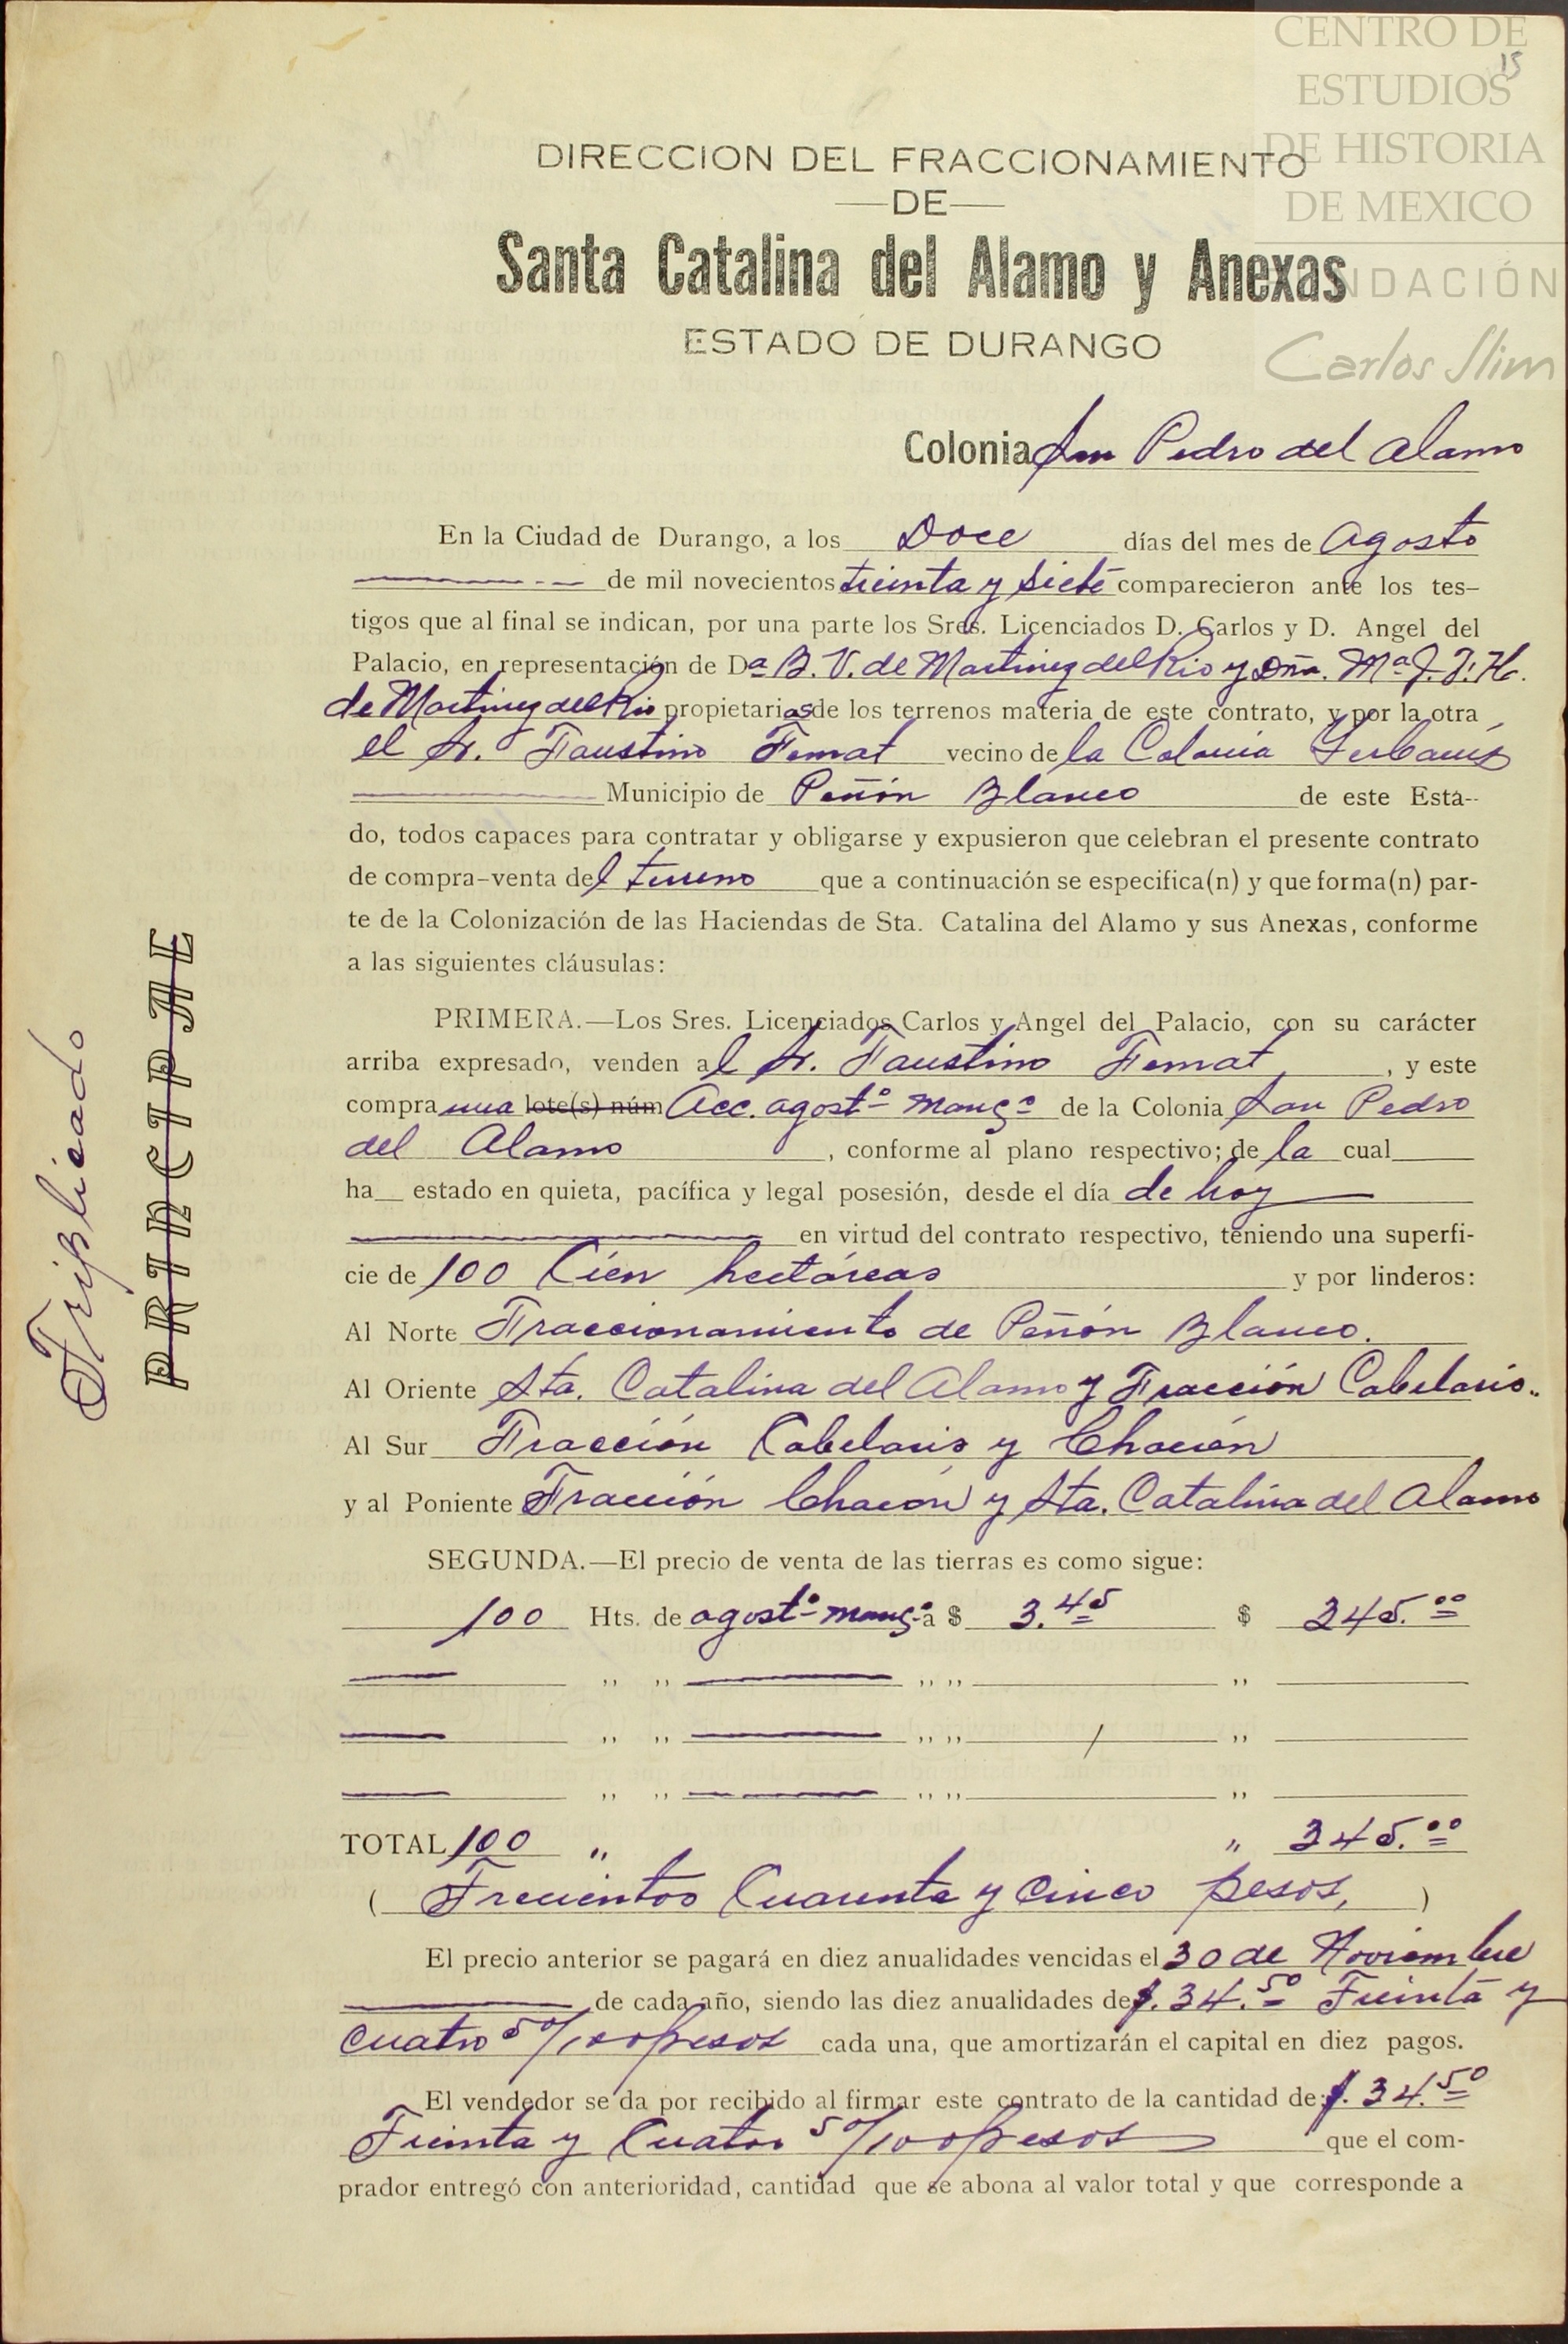 CENTRO DE
ESTUDIOS
DE HISTORIA
DE MEXICO
FUNDACIÓN
Carlos Slim
15
DIRECCION DEL FRACCIONAMIENTO
—DE—
Santa Catalina del Alamo y Anexas
ESTADO DE DURANGO
Colonia San Pedro del Alamo
En la Ciudad de Durango, a los Doce días del mes de Agosto
de mil novecientos treinta y siete comparecieron ante los tes-
tigos que al final se indican, por una parte los Sres. Licenciados D. Carlos y D. Angel del
Palacio, en representación de Da B. V. de Martinez del Rio y Dña. Ma J. J. H.
de Martinez del Rio propietarias de los terrenos materia de este contrato, y por la otra
el Sr. Faustino Femat vecino de la Colonia Yerbanis
Municipio de Peñón Blanco de este Esta-
do, todos capaces para contratar y obligarse y expusieron que celebran el presente contrato
de compra-venta del terreno que a continuación se especifica(n) y que forma(n) par-
te de la Colonización de las Haciendas de Sta. Catalina del Alamo y sus Anexas, conforme
a las siguientes cláusulas:
PRIMERA.—Los Sres. Licenciados Carlos y Angel del Palacio, con su carácter
arriba expresado, venden al Sr. Faustino Femat, y este
compra una lote(s) núm Acc. agost° manc° de la Colonia San Pedro
del Alamo, conforme al plano respectivo; de la cual
ha estado en quieta, pacífica y legal posesión, desde el día de hoy
en virtud del contrato respectivo, teniendo una superfi-
cie de 100 Cien hectáreas y por linderos:
Al Norte Fraccionamiento de Peñón Blanco.
Al Oriente Sta. Catalina del Alamo y Fracción Cabelaris..
Al Sur Fracción Cabelaris y Chacón
y al Poniente Fracción Chacón y Sta. Catalina del Alamo
SEGUNDA.—El precio de venta de las tierras es como sigue:
100 Hts. de agost° manc° a $ 3.45 $ 345.00
,, ,, ,, ,, ,,
,, ,, ,, ,, / ,,
,, ,, ,, ,, ,,
TOTAL 100 ,, ,, 345.00
( Trecientos Cuarenta y Cinco pesos, )
El precio anterior se pagará en diez anualidades vencidas el 30 de Noviembre
de cada año, siendo las diez anualidades de $. 34.50 Treinta y
Cuatro 50/100 pesos cada una, que amortizarán el capital en diez pagos.
El vendedor se da por recibido al firmar este contrato de la cantidad de: $. 34.50
Treinta y Cuatro 50/100 pesos que el com-
prador entregó con anterioridad, cantidad que se abona al valor total y que corresponde a
PRINCIPAL
Triplicado